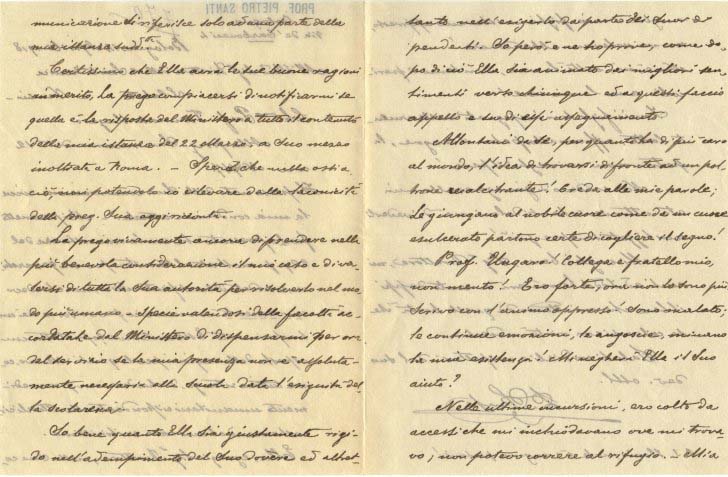 municazione si riferisce solo ad una parte della
mia istanza suddetta.
Certissimo che Ella avrà le sue buone ragioni
in merito, La prego compiacersi di notificarmi se
quella è la risposta del Ministero a tutto il contenuto
della mia istanza del 22 Marzo, a Suo mezzo
inoltrata a Roma. — Spero che nulla osti a
ciò, non potendolo io rilevare dalla laconicità
della preg. Sua oggi ricevuta.
La prego vivamente ancora di prendere nella
più benevola considerazione il mio caso e di va-
lersi di tutta la Sua autorità per risolverlo nel mo-
do più umano — Specie valendosi della facoltà ac-
cordatale dal Ministero di dispensarmi per ora
dal servizio se la mia presenza non è assoluta-
mente necessaria alla scuola data l'esiguità del-
la scolaresca.
So bene quanto Ella sia giustamente rigi-
do nell'adempimento del Suo dovere ed altret-
tanto nell'esigerlo da parte dei Suoi di-
pendenti. So però, e ne ho prove, come do-
po di ciò Ella sia animato dai migliori sen-
timenti verso chiunque ed a questi faccio
appello e su di essi assegnamento
Allontani da Sé, per quanto ha di più caro
al mondo, l'idea di trovarsi di fronte ad un pol-
trone recalcitrante! Creda alle mie parole;
Le giungano al nobile cuore come da un cuore
esulcerato partono certe di cogliere il segno!
Prof. Ungaro! Collega e fratello mio,
non mento! Ero forte, ora non lo sono più
Scrivo con l'animo oppresso! Sono malato;
le continue emozioni, le angoscie, minano
la mia esistenza! Mi negherà Ella il Suo
aiuto?
Nelle ultime incursioni, ero colto da
accessi che mi inchiodavano ove mi trova-
vo; non potevo correre al rifugio. — Mia
PROF. PIETRO SANTI